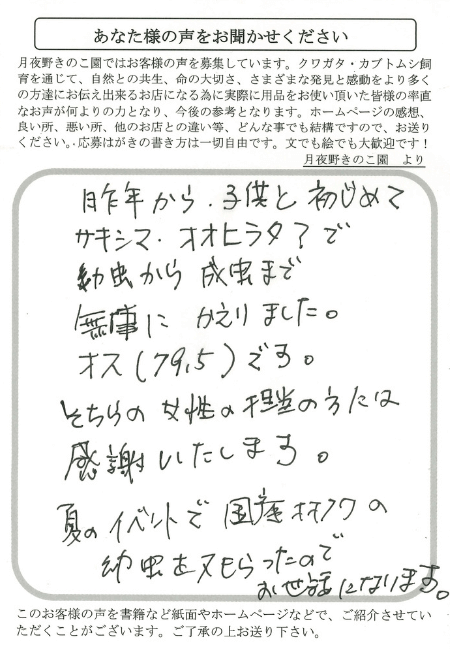 あなた様の声をお聞かせください
月夜野きのこ園ではお客様の声を募集しています。クワガタ・カブトムシ飼
育を通じて、自然との共生、命の大切さ、さまざまな発見と感動をより多く
の方達にお伝え出来るお店になる為に実際に用品をお使い頂いた皆様の率直
なお声が何よりの力となり、今後の参考となります。ホームページの感想、
良い所、悪い所、他のお店との違い等、どんな事でも結構ですので、お送り
ください。応募はがきの書き方は一切自由です。文でも絵でも大歓迎です！
月夜野きのこ園　より
昨年から、子供と初じめて
サキシマ・オオヒラタ？で
幼虫から成虫まで
無事に かえりました。
オス(79,5)です。
そちらの女性の担当の方には
感謝いたします。
夏のイベントで国産オオクワの
幼虫を又もらったので
お世話になります。
このお客様の声を書籍など紙面やホームページなどで、ご紹介させてい
ただくことがございます。ご了承の上お送り下さい。